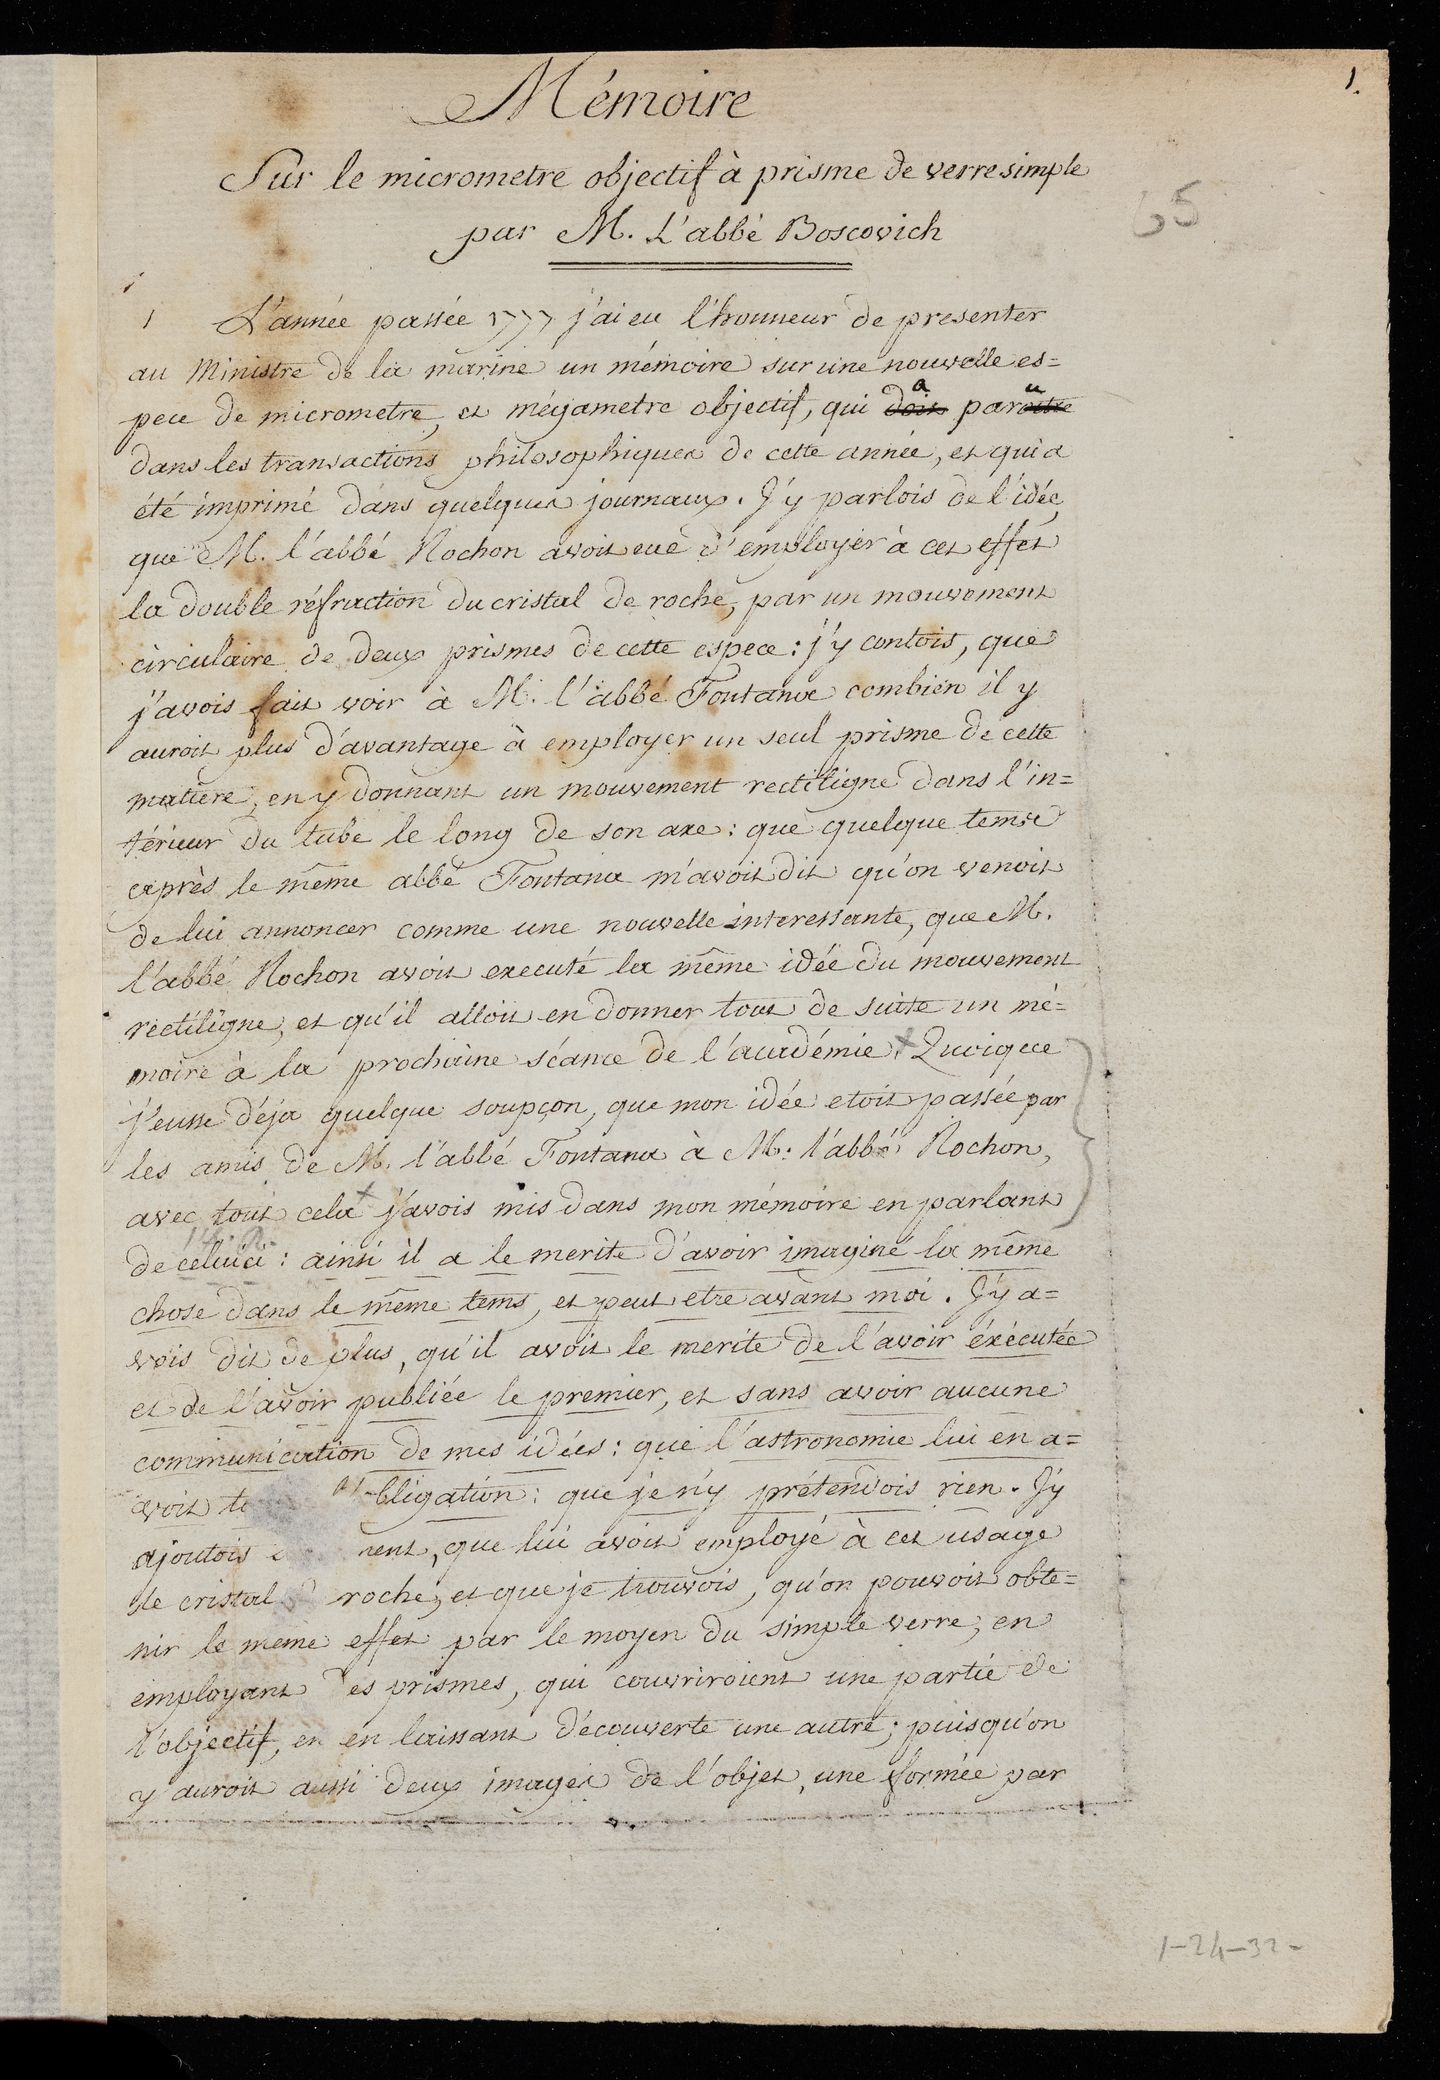 1.
Mémoire
Sur le micrometre objectif à prisme de verre simple
65
par M. L'abbé Boscovich
1 L'année passée 1777 j'ai eu l'honneur de presenter
au Ministre de la marine un mémoire sur une nouvelle es=
pece de micrometre, et mégametre objectif, qui doit a paroitre u
dans les transactions philosophiques de cette année, et qui a
été imprimé dans quelques journaux. J'y parlois de l'idée,
que M. l'abbé Rochon avoit eue d'employer à cet effet
la double réfraction du cristal de roche, par un mouvement
circulaire de deux prismes de cette espece: j'y contois, que
j'avois fait voir à M. l'abbé Fontana combien il y
auroit plus d'avantage à employer un seul prisme de cette
matiere, en y donnant un mouvement rectiligne dans l'in=
térieur du tube le long de son axe: que quelque tems
après le même abbé Fontana m'avoit dit qu'on venoit
de lui annoncer comme une nouvelle interessante, que M.
l'abbé Rochon avoit executé la même idée du mouvement
rectiligne, et qu'il alloit en donner tout de suite un mé=
moire à la prochaine séance de l'académie. + Quoique
j'eusse déja quelque soupçon, que mon idée etoit passée par
les amis de M. l'abbé Fontana à M. l'abbé Rochon,
avec tout cela + j'avois mis dans mon mémoire en parlant
de celuici: ainsi il a le merite d'avoir imaginé la même
chose dans le même tems, et peut etre avant moi. J'y a=
vois dit de plus, qu'il avoit le merite de l'avoir éxécutée
et de l'avoir publiée le premier, et sans avoir aucune
communication de mes idées: que l'astronomie lui en a=
voit bligation: que je n'y prétendois rien. J'y
ajoutois ment, que lui avoit employé à cet usage
le cristal roche, et que je trouvois, qu'on pouvoit obte=
nir le meme effet par le moyen du simple verre, en
employant es prismes, qui couvriroient une partie de
l'objectif, en en laissant découverte une autre; puisqu'on
y auroit aussi deux images de l'objet, une formée par
1-24-32-